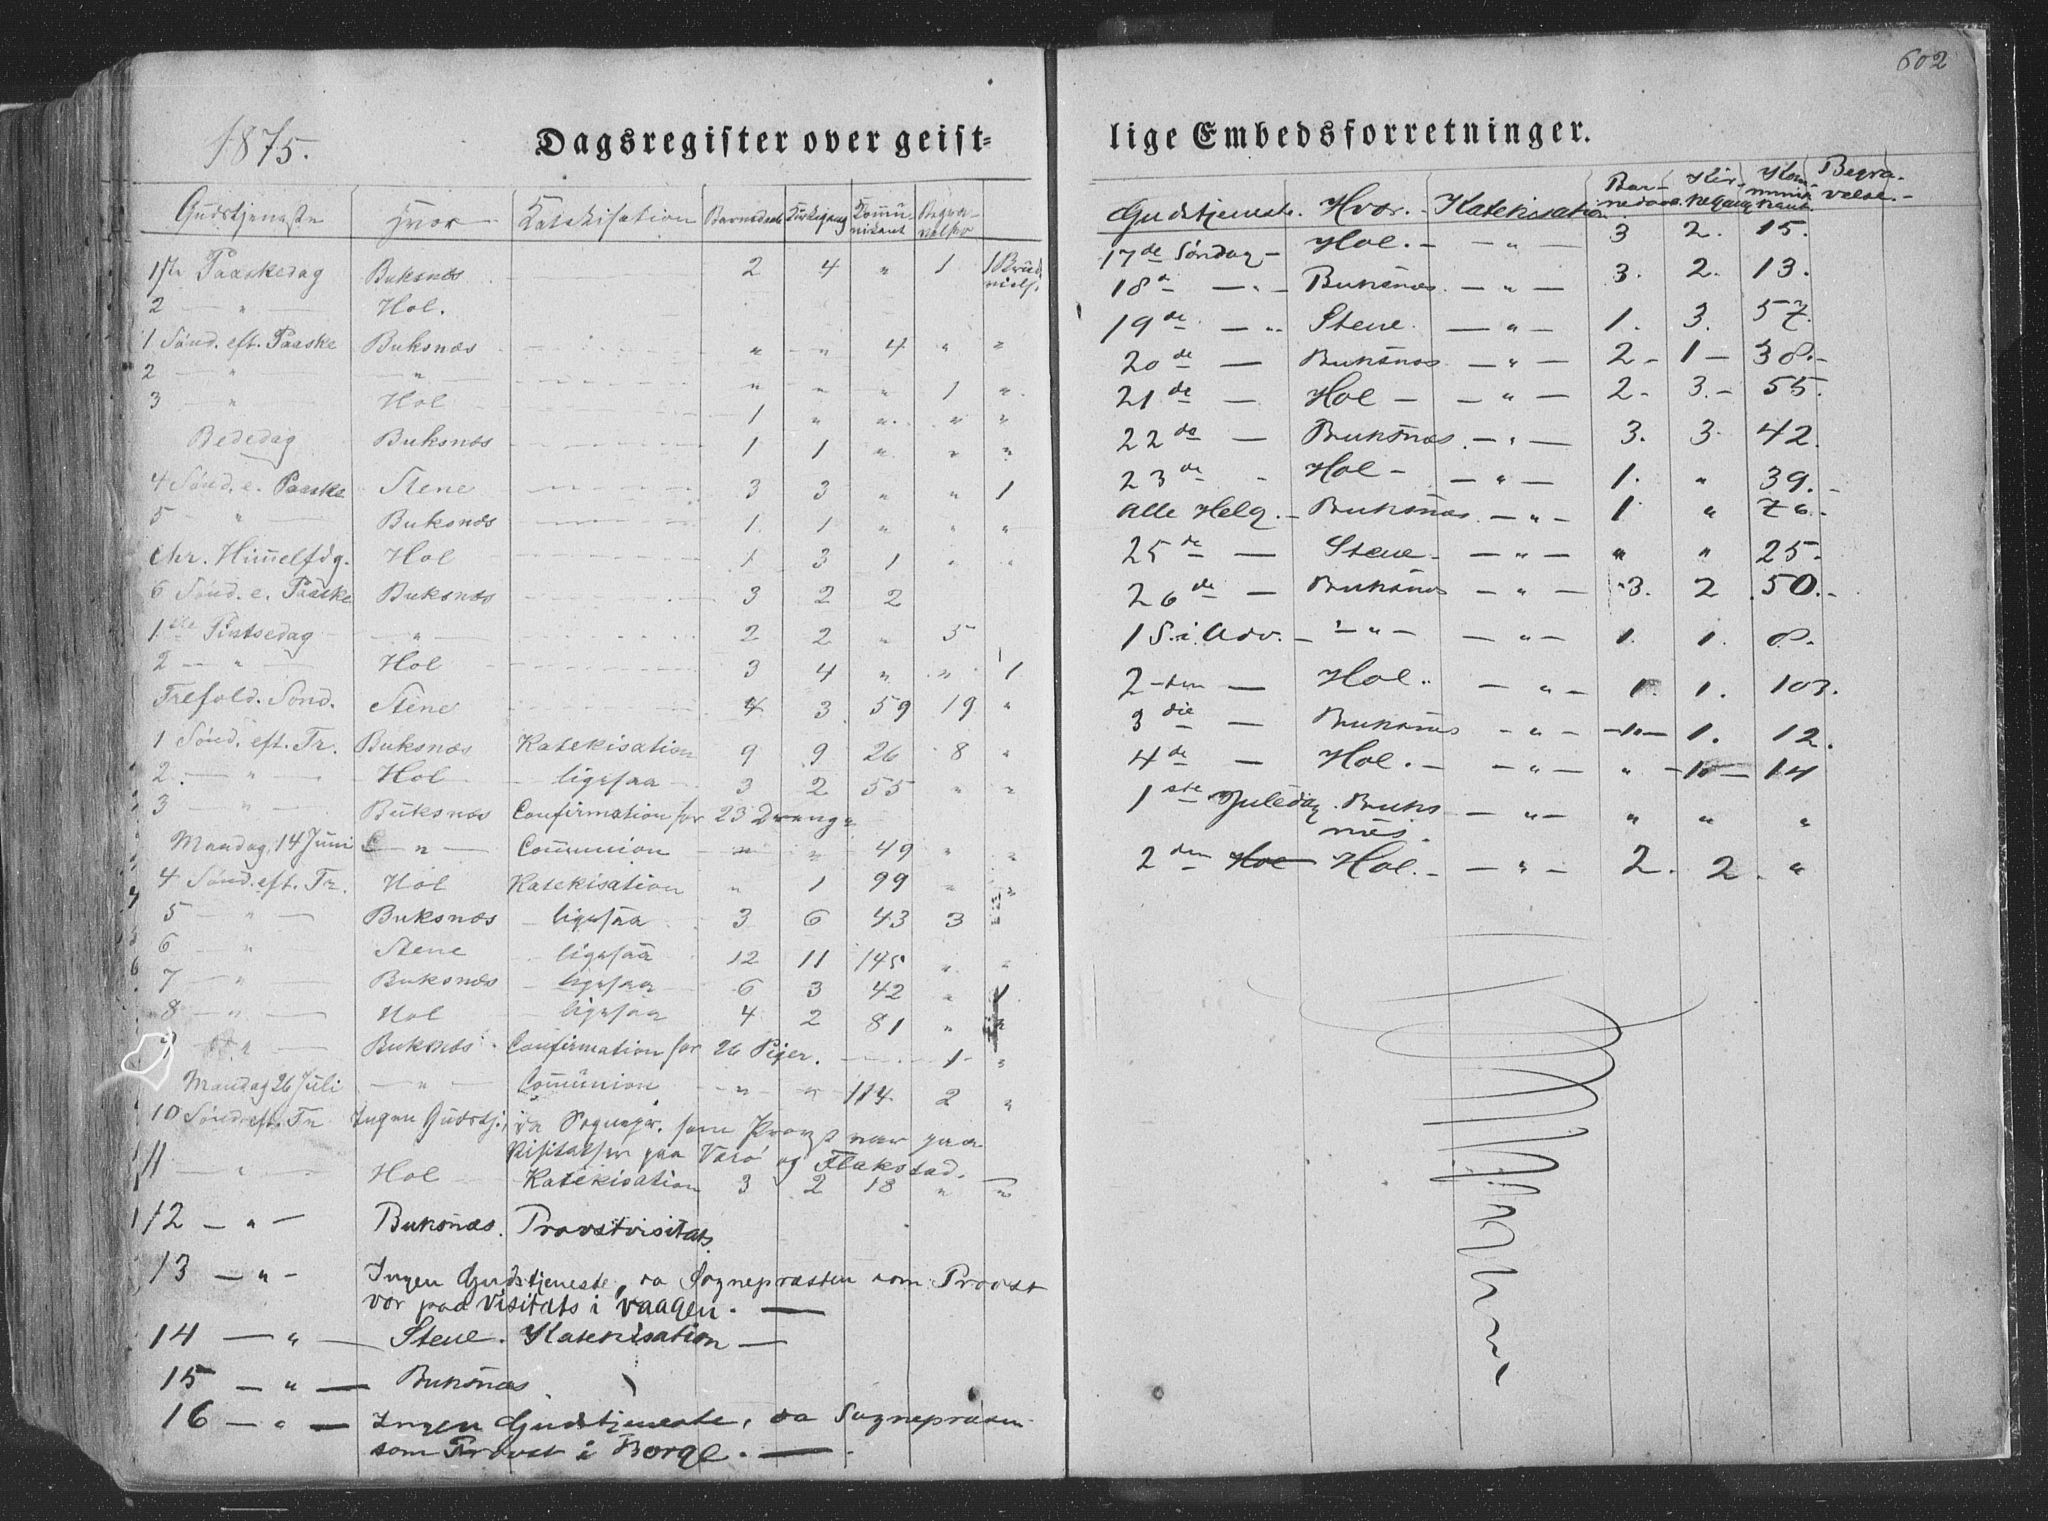 602
1875.
Dagsregister over geist-
lige Embedsforretninger.
Gudstjeneste Hvor Katekisation Barnedaab Kirkegang Kommunikant Begravelse
1ste Paaskedag Buksnæs 2 4 " 1 1 Brudvielse
2 — " — Hol.
1 Sønd. eft. Paaske Buksnæs " " 4 " "
2 — " — — " — " " " 1 "
3 — " — Hol 1 " " " "
Bededag Buksnæs 1 1 " " "
4 Sønd. e. Paaske Stene 3 3 " " 1
5 — " — Buksnæs 1. 1 " " "
Chr. Himelfdg. Hol 1 3 1 " "
6 Sønd. e. Paaske Buksnæs 3 2 2
1ste Pintsedag — " — 2 2 " 5
2 — " — Hol 3 4 " " 1
Trefold. Sønd. Stene 4 3 59 19 "
1 Sønd. eft. Tr. Buksnæs Katekisation 9 9 26 8 "
2. — " — Hol — ligesaa — 3 2 55 " "
3 — " — Buksnæs Confirmation for 23 Drenge
Mandag, 14 Juni — " — Communion — " " 49 " "
4 Sønd. eft. Tr. Hol Katekisation " 1 99 " "
5 — " — Buksnæs — ligesaa 3 6 43 3
6 — " — Stene — ligesaa 12 11 145 " "
7 — " — Buksnæs — ligesaa — 6 3 42 " 1
8 — " — Hol — ligesaa 4 2 81 " "
9 — " — Buksnæs Confirmation for 26 Piger. 1 "
Mandag 26 Juli — " — Communion — " " 114 2 "
10 Sønd. eft. Tr Ingen Gudstj., da Sognepr. som Provst var paa
Visitatser paa Værø og Flakstad.
11 — " — Hol Katekisation 3 2 18 " "
12 — " — Buksnæs. Provstvisitats.
13 — " — Ingen Gudstjeneste, da Sognepræsten som Provst
var paa Visitats i Vaagen. —
14 — " — Stene. Katekisation —
15 — " — Buksnæs.
16 — " — Ingen Gudstjeneste, da Sognepræsten
som Provst i Borge. —
Gudstjeneste. Hvor. Katekisation Barnedaab Kirkegang Kommunikant Begravelse.
17de Søndag — Hol. — — " — 3 2. 15.
18de — " — Buksnæs. — " — 3. 2. 13.
19de — " Stene. — " — 1. 3. 57.
20de — Buksnæs. — " — 2 — 1 — 38. —
21de — Hol — — " — 2 — 3. — 55.
22de — Buksnæs. — " — 3. 3. 42.
23de — Hol — — " — 1. " 39. —
Alle Helg. — Buksnæs. — " — 1 " 76. —
25de — Stene — — " — " " 25.
26de — Buksnæs — " — 3. 2 50. —
1 S. i Adv. — — " — — " — 1. 1. 8.
2-den — Hol. — " — 1. 1. 103.
3die — Buksnæs — " — — " — 1. 12.
4de — Hol. — — " — " — " — 14
1ste Juledag. Buks — " — " " "
næs.
2den Hol Hol. — — " — 2. 2. "